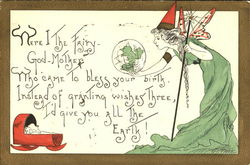 Were I the Fairy-
God-Mother
Who came to bless your birth.
Instead of granting wishes three,
I'd give you all the
Earth!